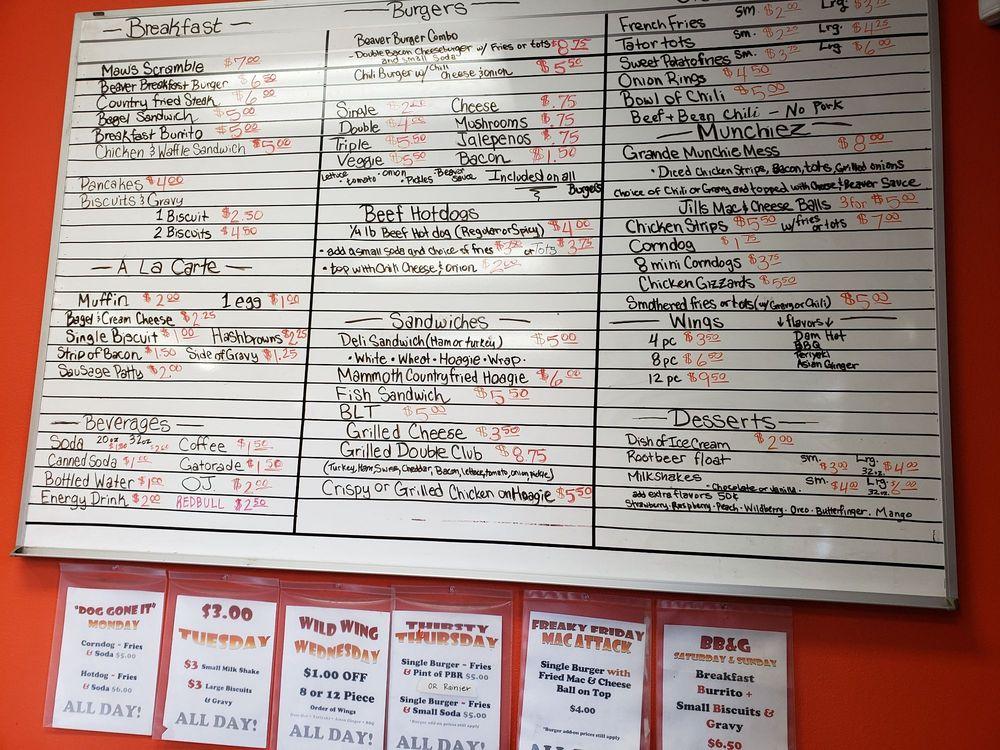 Breakfast
Maws Scramble $7.00
Beaver Breakfast Burger $6.50
Country fried Steak $6.00
Bagel Sandwich $5.00
Breakfast Burrito $5.00
Chicken & Waffle Sandwich $5.00
Pancakes $4.00
Biscuits & Gravy
1 Biscuit $2.50
2 Biscuits $4.50
A La Carte
Muffin $2.00 1 egg $1.00
Bagel & Cream Cheese $2.25
Single Biscuit $1.00 Hashbrowns $2.25
Strip of Bacon $1.50 Side of Gravy $1.25
Sausage Patty $2.00
Beverages
Soda 20oz $1.50 32oz $2.00 Coffee $1.50
Canned Soda $1.00 Gatorade $1.50
Bottled Water $1.00 OJ $2.00
Energy Drink $2.00 REDBULL $2.50
Burgers
Beaver Burger Combo
- Double Bacon Cheeseburger w/ Fries or tots $8.75
and small Soda
Chili Burger w/ Chili cheese & onion $5.50
Single Cheese $.75
Double $4.00 Mushrooms $.75
Triple $5.50 Jalepenos $.75
Veggie $5.50 Bacon $1.50
Lettuce • tomato • onion • Pickles • Beaver Sauce Included on all
Burgers
Beef Hotdogs
1/4 lb Beef Hot dog (Regular or Spicy) $4.00
• add a small soda and choice of fries or Tots $3.75
• top with Chili Cheese & onion $2.00
Sandwiches
Deli Sandwich (Ham or turkey) $5.00
• White • Wheat • Hoagie • Wrap •
Mammoth Country fried Hoagie $6.00
Fish Sandwich $5.50
BLT $5.00
Grilled Cheese $3.50
Grilled Double Club $8.75
(Turkey, Ham, Swiss, Cheddar, Bacon, lettuce, tomato, onion, pickle)
Crispy or Grilled Chicken on Hoagie $5.50
French Fries Sm. $2.00 Lrg.
Tator tots Sm. Lrg. $4.25
Sweet Potato fries Sm. $3.75 Lrg. $6.00
Onion Rings $4.50
Bowl of Chili $5.00
Beef + Bean Chili - No Pork
Munchiez
Grande Munchie Mess $8.00
• Diced Chicken Strips, Bacon, tots, Grilled onions
choice of Chili or Gravy and topped with Cheese & Beaver Sauce
Jills Mac & Cheese Balls 3 for $5.00
Chicken Strips $5.50 w/fries or tots $7.00
Corndog $1.75
8 mini Corndogs $3.75
Chicken Gizzards $5.50
Smothered fries or tots (w/ Gravy or Chili) $5.00
Wings ↓flavors↓
4 pc $3.50 Dam Hot
BBQ
8 pc $6.50 Teriyaki
Asian Ginger
12 pc $9.50
Desserts
Dish of Ice Cream $2.00
Rootbeer float Sm. $3.00 Lrg. 32oz. $4.00
Milkshakes • Chocolate or Vanilla • Sm. $4.00 Lrg. 32oz.
add extra flavors 50¢
Strawberry • Raspberry • Peach • Wildberry • Oreo • Butterfinger • Mango
"DOG GONE IT"
MONDAY
Corndog ~ Fries
& Soda $5.00
Hotdog ~ Fries
& Soda $6.00
ALL DAY!
$3.00
TUESDAY
$3 Small Milk Shake
$3 Large Biscuits
& Gravy
ALL DAY!
WILD WING
WEDNESDAY
$1.00 OFF
8 or 12 Piece
Order of Wings
Dam Hot ~ Teriyaki ~ Asian Ginger ~ BBQ
ALL DAY!
THIRSTY
THURSDAY
Single Burger ~ Fries
& Pint of PBR $5.00
OR Rainier
Single Burger ~ Fries
& Small Soda $5.00
*Burger add-on prices still apply
ALL DAY!
FREAKY FRIDAY
MAC ATTACK
Single Burger with
Fried Mac & Cheese
Ball on Top
$4.00
*Burger add-on prices still apply
ALL DAY!
BB&G
SATURDAY & SUNDAY
Breakfast
Burrito +
Small Biscuits &
Gravy
$6.50